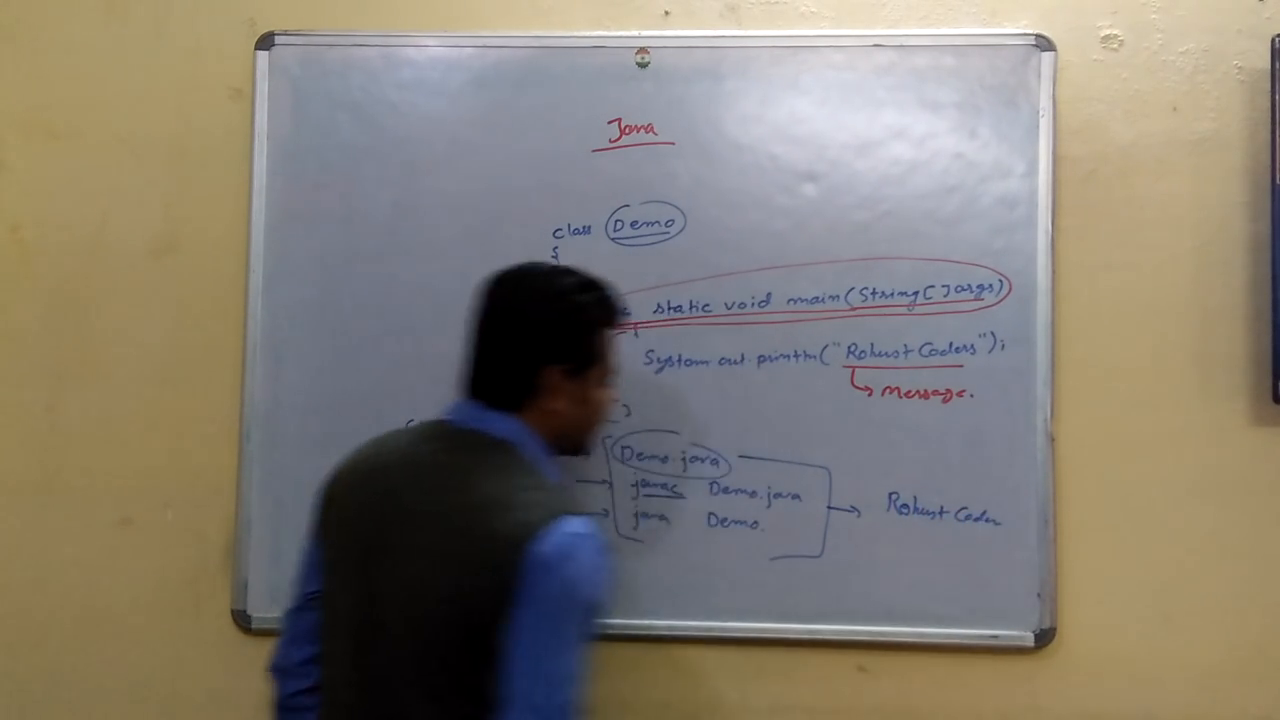 Java
class Demo
{
static void main(String[] args)
{
System.out.println("Robust Coders");
Message.
}
Demo.java
javac Demo.java
java Demo.
Robust Coder